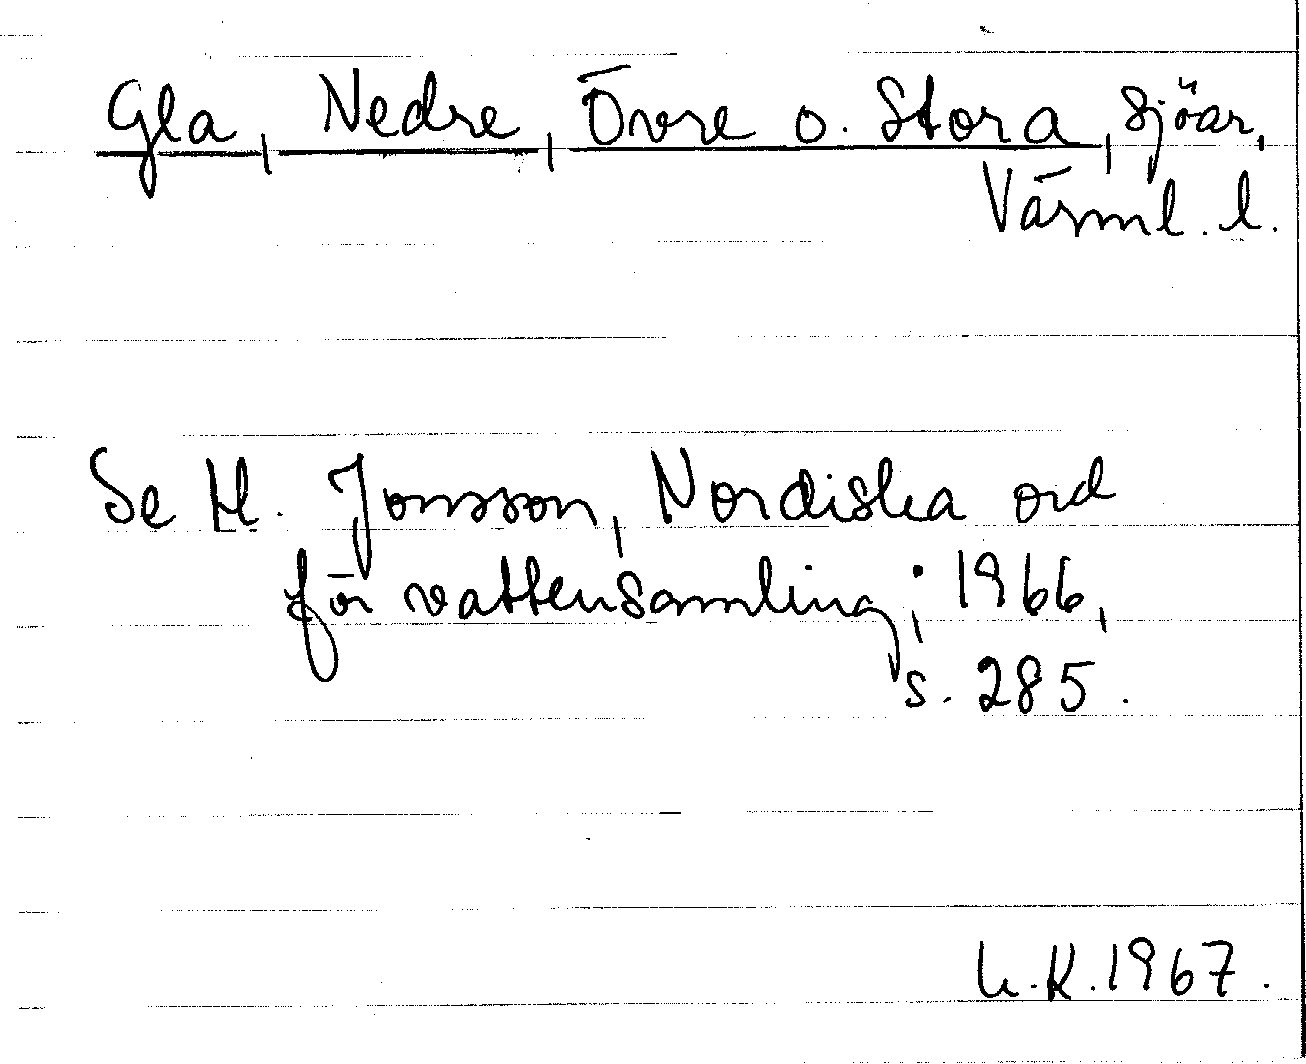 Gla, Nedre, Övre o. Stora, sjöar,
Värml. l.
Se H. Jonsson, Nordiska ord
för vattensamling; 1966,
s. 285.
L.K. 1967.